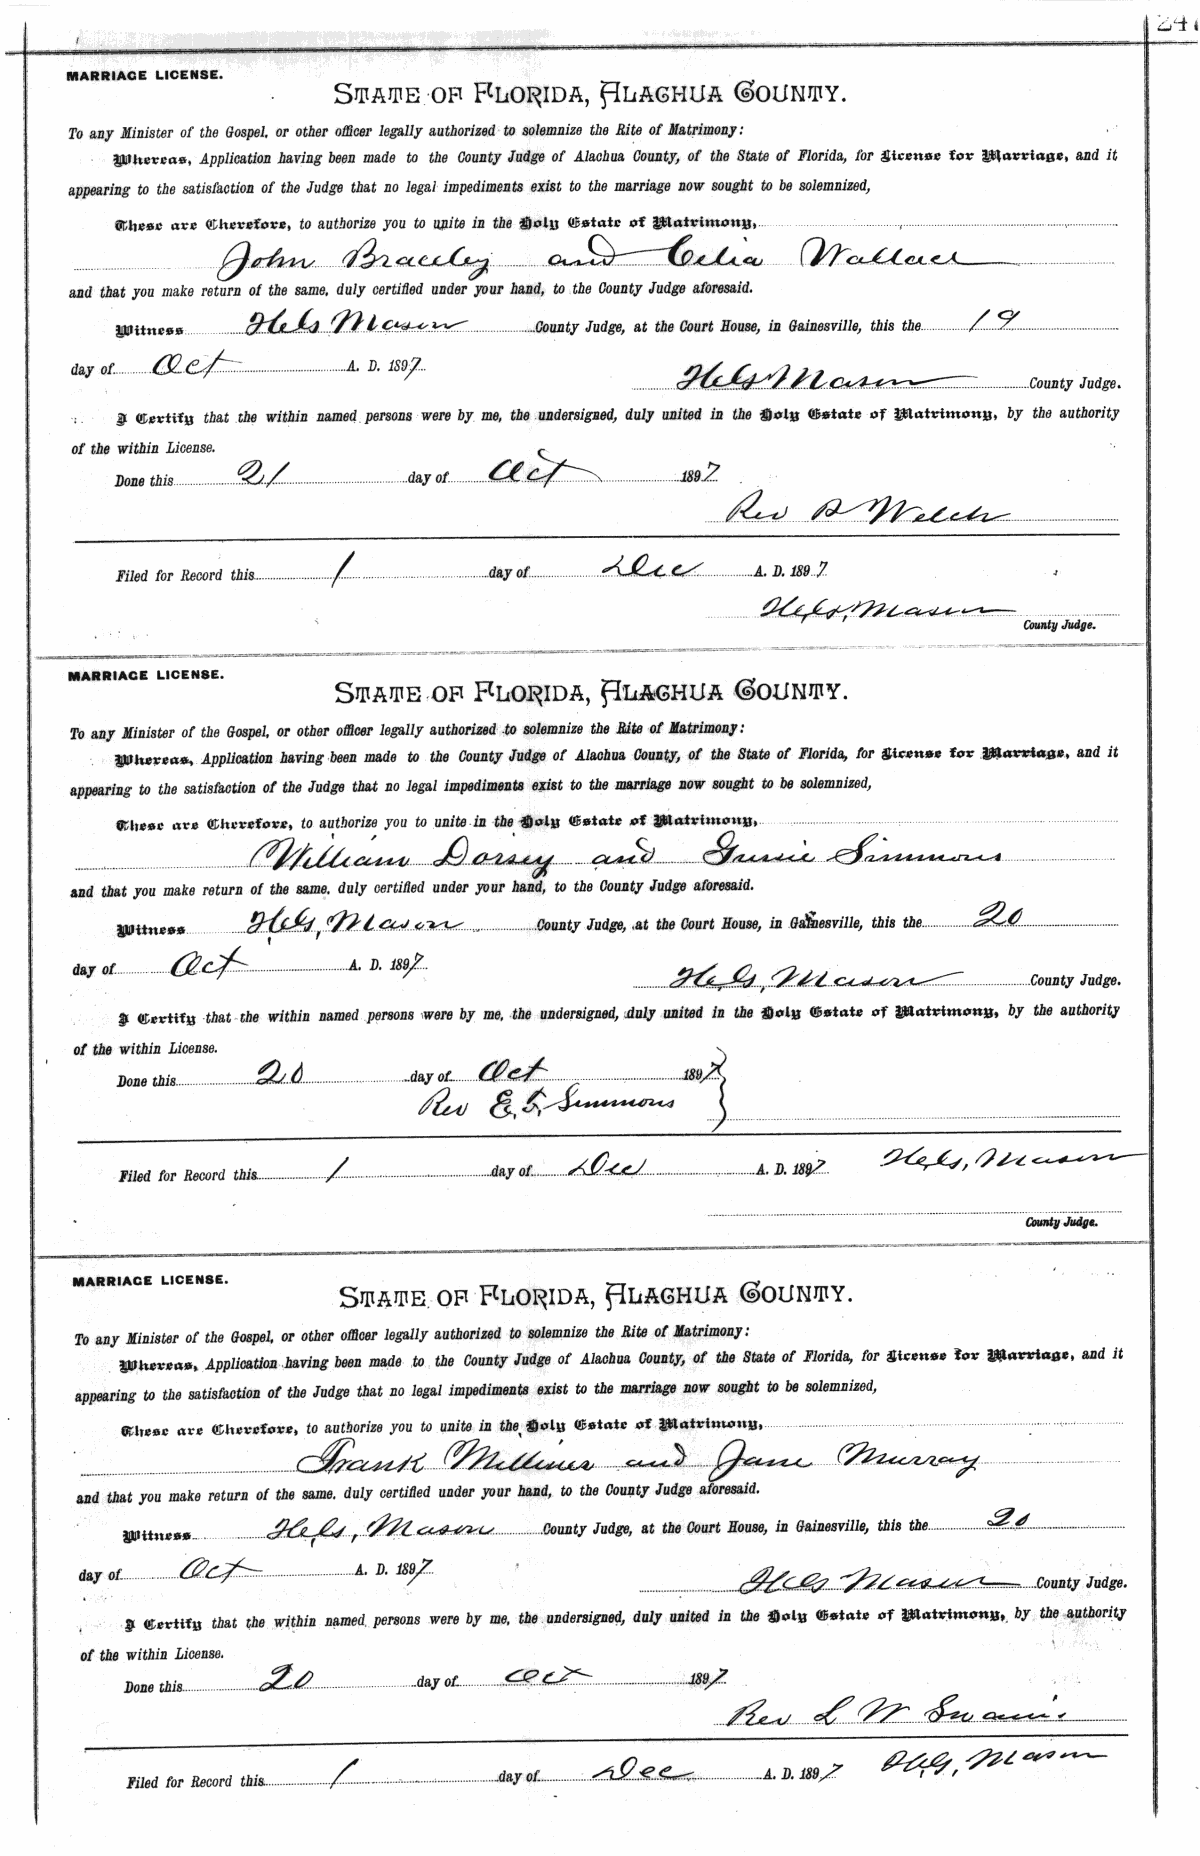 247
MARRIAGE LICENSE.
STATE OF FLORIDA, ALACHUA COUNTY.
To any Minister of the Gospel, or other officer legally authorized to solemnize the Rite of Matrimony:
Whereas, Application having been made to the County Judge of Alachua County, of the State of Florida, for License for Marriage, and it
appearing to the satisfaction of the Judge that no legal impediments exist to the marriage now sought to be solemnized,
These are Therefore, to authorize you to unite in the Holy Estate of Matrimony,
John Braceley and Celia Wallace
and that you make return of the same, duly certified under your hand, to the County Judge aforesaid.
Witness H. G. Mason County Judge, at the Court House, in Gainesville, this the 19
day of Oct A. D. 1897
H. G. Mason County Judge.
I Certify that the within named persons were by me, the undersigned, duly united in the Holy Estate of Matrimony, by the authority
of the within License.
Done this 21 day of Oct 1897
Rev Welch
Filed for Record this 1 day of Dec A. D. 1897
H. G. Mason
County Judge.
MARRIAGE LICENSE.
STATE OF FLORIDA, ALACHUA COUNTY.
To any Minister of the Gospel, or other officer legally authorized to solemnize the Rite of Matrimony:
Whereas, Application having been made to the County Judge of Alachua County, of the State of Florida, for License for Marriage, and it
appearing to the satisfaction of the Judge that no legal impediments exist to the marriage now sought to be solemnized,
These are Therefore, to authorize you to unite in the Holy Estate of Matrimony,
William Dorsey and Gussie Simmons
and that you make return of the same, duly certified under your hand, to the County Judge aforesaid.
Witness H. G. Mason County Judge, at the Court House, in Gainesville, this the 20
day of Oct A. D. 1897
H. G. Mason County Judge.
I Certify that the within named persons were by me, the undersigned, duly united in the Holy Estate of Matrimony, by the authority
of the within License.
Done this 20 day of Oct 1897
Rev E. F. Simmons
Filed for Record this 1 day of Dec A. D. 1897 H. G. Mason
County Judge.
MARRIAGE LICENSE.
STATE OF FLORIDA, ALACHUA COUNTY.
To any Minister of the Gospel, or other officer legally authorized to solemnize the Rite of Matrimony:
Whereas, Application having been made to the County Judge of Alachua County, of the State of Florida, for License for Marriage, and it
appearing to the satisfaction of the Judge that no legal impediments exist to the marriage now sought to be solemnized,
These are Therefore, to authorize you to unite in the Holy Estate of Matrimony,
Frank Milliner and Jane Murray
and that you make return of the same, duly certified under your hand, to the County Judge aforesaid.
Witness H. G. Mason County Judge, at the Court House, in Gainesville, this the 20
day of Oct A. D. 1897
H. G. Mason County Judge.
I Certify that the within named persons were by me, the undersigned, duly united in the Holy Estate of Matrimony, by the authority
of the within License.
Done this 20 day of Oct 1897
Rev L W
Filed for Record this 1 day of Dec A. D. 1897 H. G. Mason